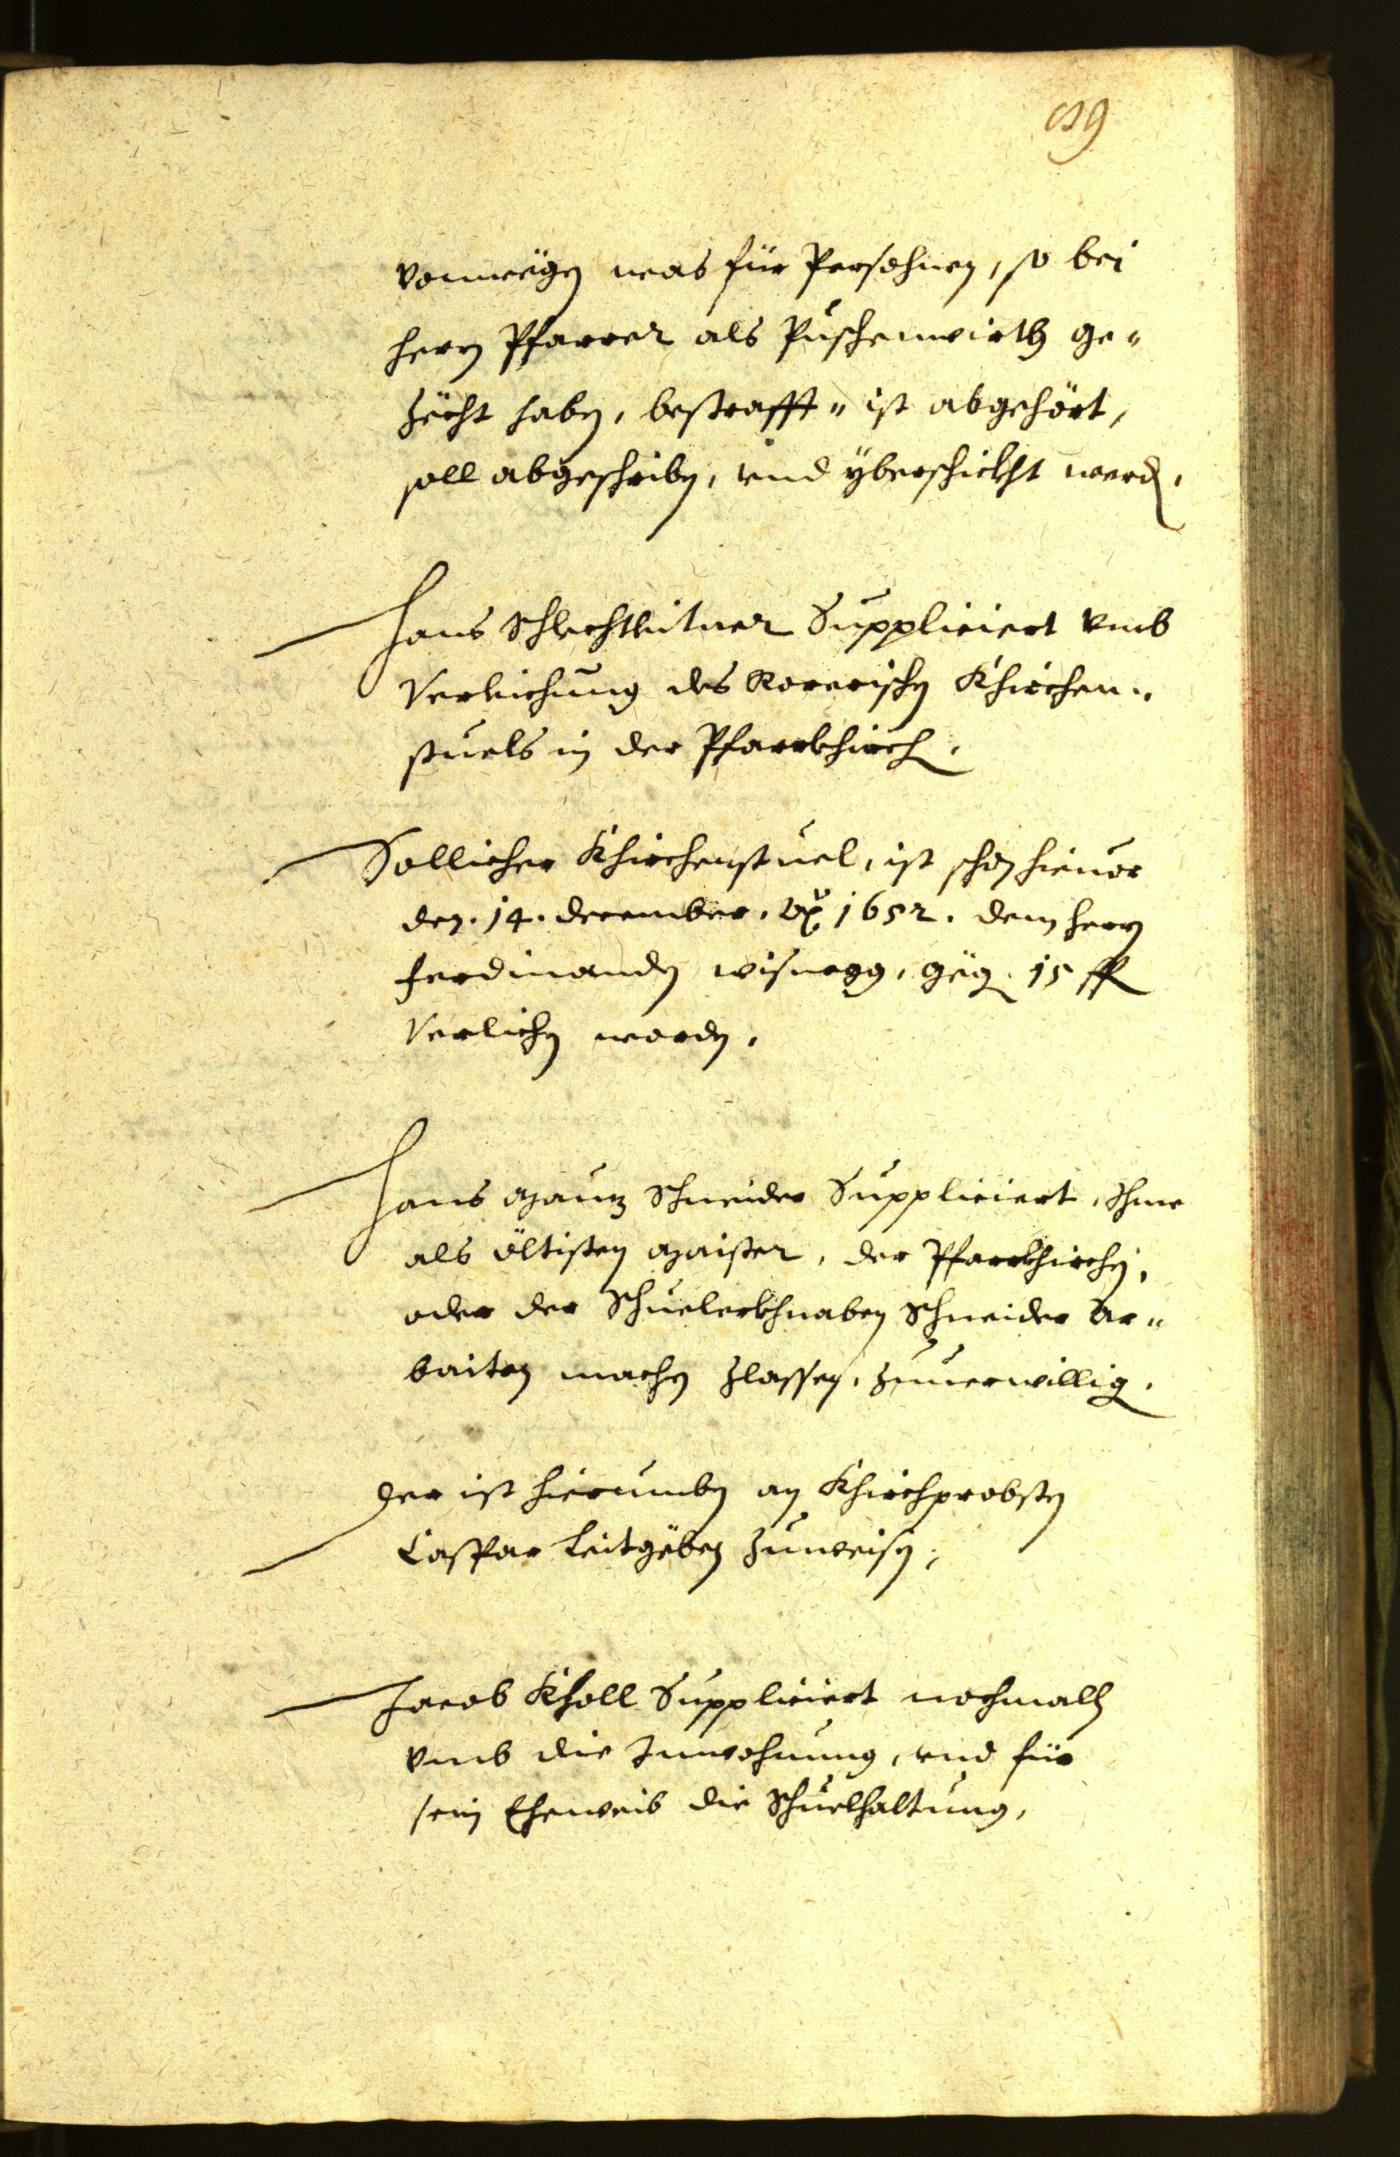 vonwegen was für Persohnen, so bei
herrn Pfarrer als Puschenwirth ge-
zöcht haben, bestrafft - ist abgehört,
soll abgeschriben, vnd yberschickht werden.
Hans Schlechtleitner Suppliciert vmb
Verleichung des Rorerischen Khirchen-
stuels in der Pfarrkhirch.
Sollicher Khirchenstuel, ist schon hieuor
den. 14. december. 1652. dem herrn
ferdinanden wisnegg, gegen 15 fl
Verlichen worden.
Hans Mauz Schneider Suppliciert, Ihme
als öltisten Maister, der Pfarrkhirchen,
oder der Schuelerkhnaben Schneider Ar-
baiten machen zlassen, zuuerwilligen.
Der ist hierumben an Khirchprobsten
Casspar Leitgeben zuweisen.
Jacob Kholl Suppliciert nochmalls
vmb die Inwohnung, vnd für
sein Eheweib die Schuelhaltung,